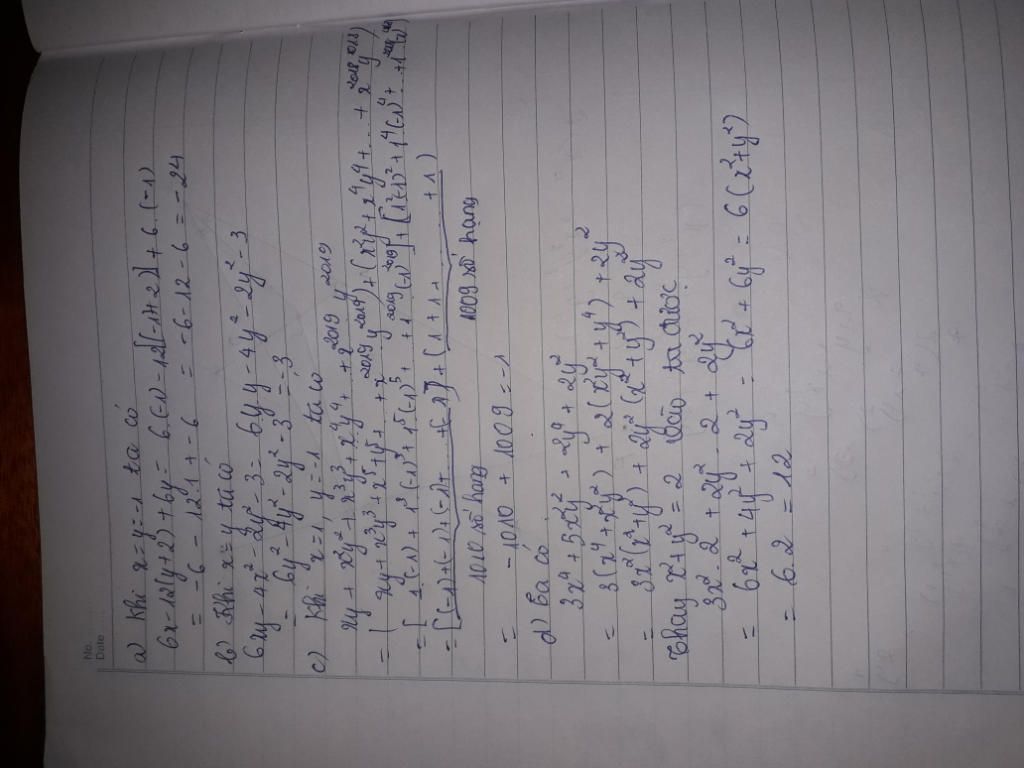 No.
Date
a) Khi x = y = -1 ta có
6x - 12(y+2) + 6y = 6(-1) - 12[(-1)+2] + 6.(-1)
= -6 - 12.1 + -6 = -6 - 12 - 6 = -24
b) Khi x = y ta có
6xy - 4x² - 2y² - 3 = 6y y - 4y² - 2y² - 3
= 6y² - 4y² - 2y² - 3 = -3
c) Khi x = 1, y = -1 ta có
xy + x²y² + x³y³ + x⁴y⁴ + + x²⁰¹⁹ y²⁰¹⁹
= (xy + x³y³ + x⁵+y⁵+ + x²⁰¹⁹ y²⁰¹⁹) + (x²y² + x⁴y⁴ + ... + x²⁰¹⁸ y²⁰¹⁸)
= [1.(-1) + 1³(-1)³ + 1⁵(-1)⁵ + + 1²⁰¹⁹(-1)²⁰¹⁹] + [1²(-1)² + 1⁴(-1)⁴ +
= [(-1) + (-1) + (-1) + + (-1)] + (1 + 1 + + 1)
1010 số hạng 1009 số hạng
= -1010 + 1009 = -1
d) Ta có
3x⁴ + 5x²y² + 2y⁴ + 2y²
= 3(x⁴ + x²y²) + 2(x²y² + y⁴) + 2y²
= 3x²(x²+y²) + 2y²(x²+y²) + 2y²
Thay x² + y² = 2 vào ta được
3x².2 + 2y².2 + 2y²
= 6x² + 4y² + 2y² = 6x² + 6y² = 6(x²+y²)
= 6.2 = 12